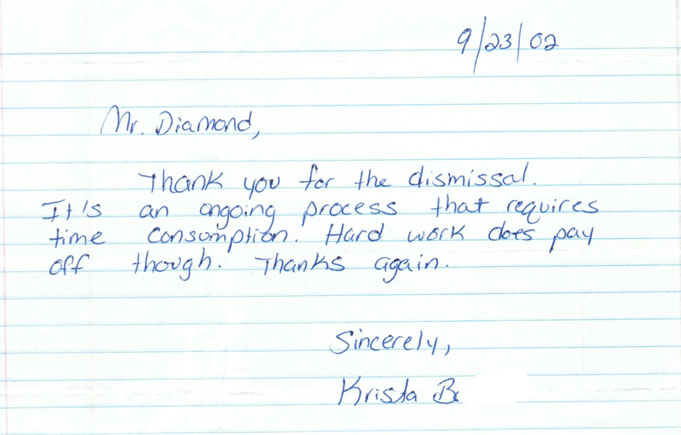 9/23/02
Mr. Diamond,
Thank you for the dismissal.
It's an ongoing process that requires
time consumption. Hard work does pay
off though. Thanks again.
Sincerely,
Krista B